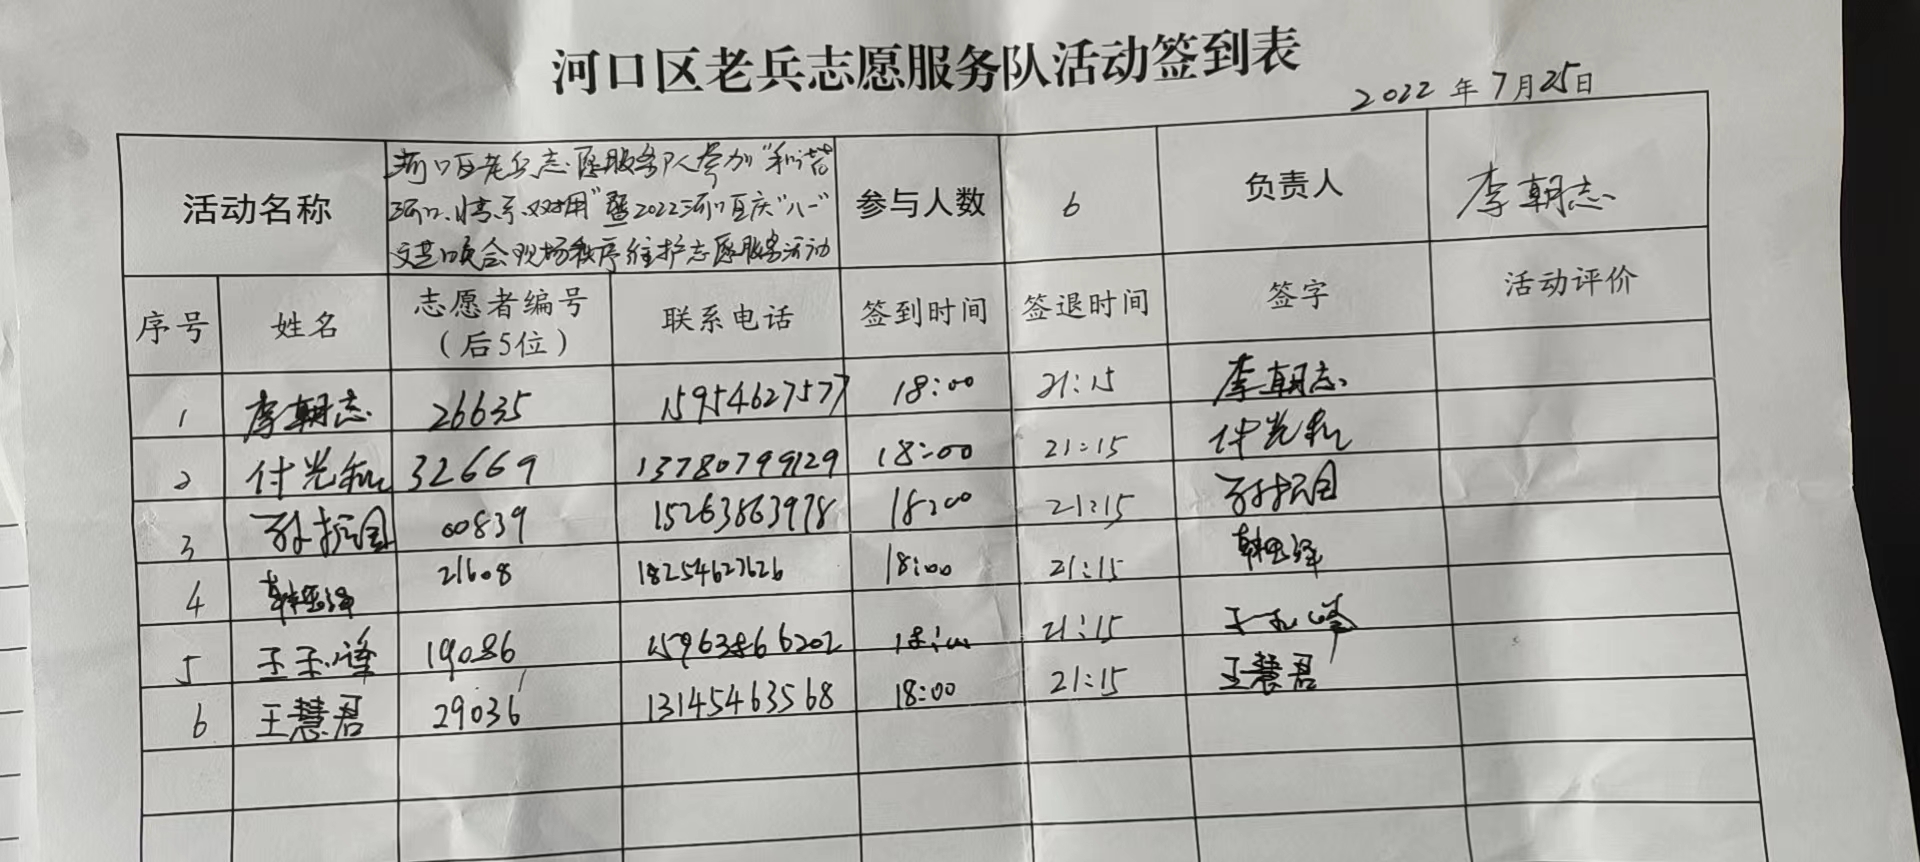 河口区老兵志愿服务队活动签到表
2022年7月25日
活动名称
河口区老兵志愿服务队参加"和谐
河口、情系双拥"暨2022河口区庆"八一"
文艺晚会现场秩序维护志愿服务活动
参与人数 6 负责人 李朝志
序号 姓名 志愿者编号（后5位） 联系电话 签到时间 签退时间 签字 活动评价
1 李朝志 26635 15954627577 18:00 21:15 李朝志
2 付光和 32669 13780799129 18:00 21:15 付光和
3 孙振国 00839 15263863978 18:00 21:15 孙振国
4 21608 18254627626 18:00 21:15
5 19086 15963866202 18:00 21:15
6 王慧君 29036 13145463568 18:00 21:15 王慧君